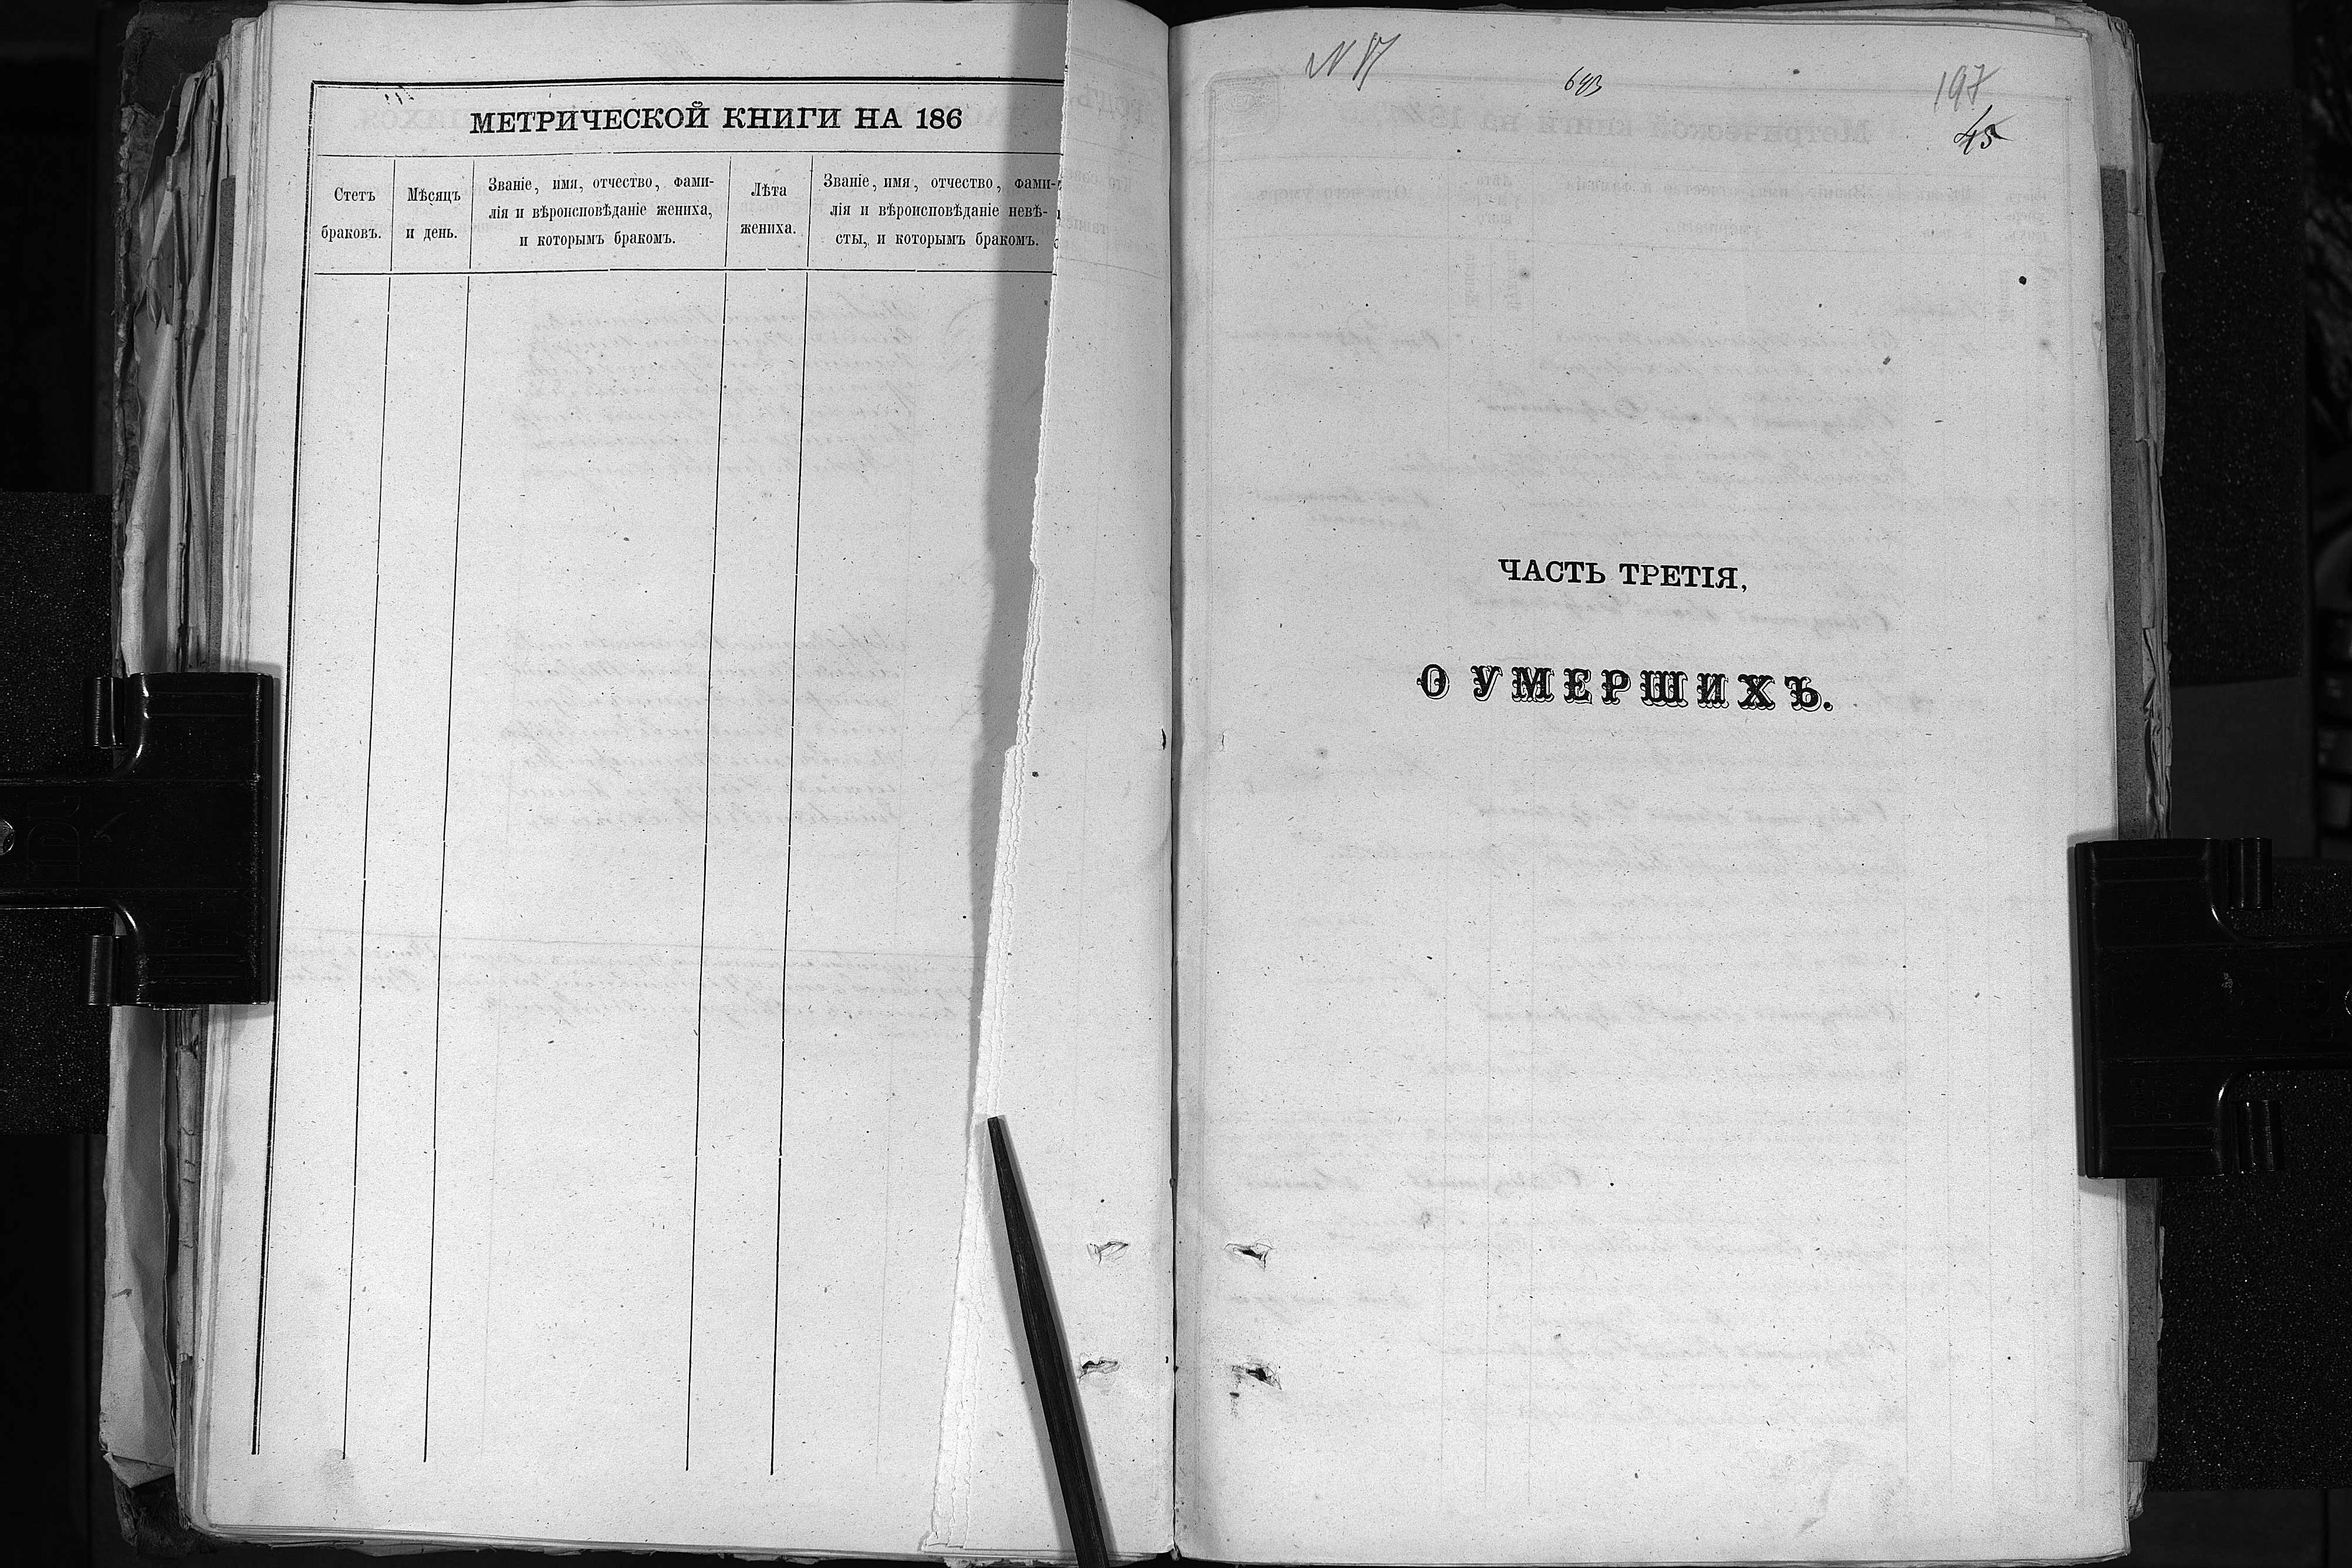 МЕТРИЧЕСКОЙ КНИГИ НА 186
Стетъ
браковъ.
Мѣсяцъ
и день.
Званіе, имя, отчество, фами-
лія и вѣроисповѣданіе жениха,
и которымъ бракомъ.
Лѣта
жениха.
Званіе, имя, отчество, фами-
лія и вѣроисповѣданіе невѣ-
сты, и которымъ бракомъ.
693
197
45
ЧАСТЬ ТРЕТІЯ,
О УМЕРШИХЪ.